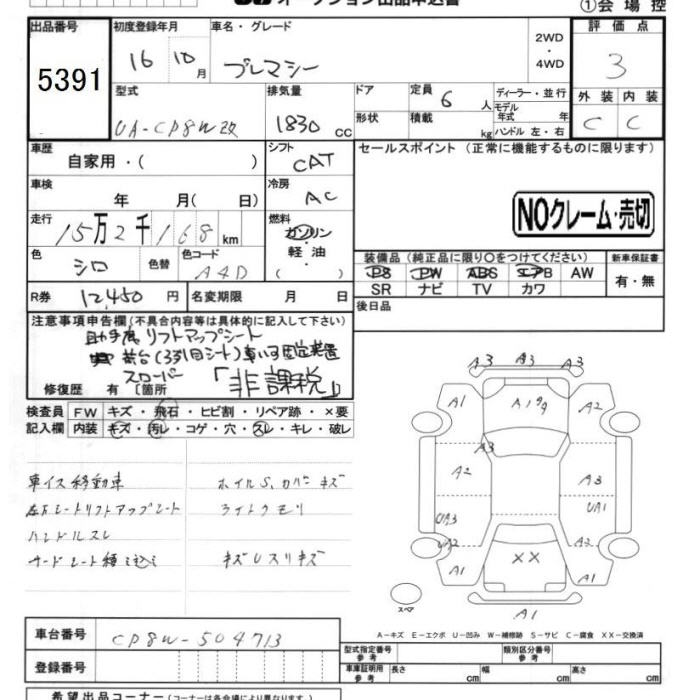 オークション出品申込書
①会場控
出品番号 5391
初度登録年月 16 10月
車名・グレード プレマシー
2WD・4WD
評価点 3
型式 UA-CP8W改
排気量 1830 cc
ドア
形状
定員 6 人
積載 kg
ディーラー・並行
モデル年式 年
ハンドル 左・右
外装 内装
C C
車歴 自家用・( )
シフト CAT
セールスポイント (正常に機能するものに限ります)
車検 年 月( 日)
冷房 AC
NOクレーム・売切
走行 15万2千168km
燃料 ガソリン・軽油・( )
色 シロ 色替 色コード A4D
装備品 (純正品に限り○をつけてください)
新車保証書
PS PW ABS エアB AW
有・無
SR ナビ TV カワ
R券 12,450円 名変期限 月 日
後日品
注意事項申告欄(不具合内容等は具体的に記入して下さい)
助手席リフトアップシート
車いす固定装置
スローパー 「非課税」
修復歴 有 〔箇所
検査員 FW キズ・飛石・ヒビ割・リペア跡・×要
記入欄 内装 キズ・汚レ・コゲ・穴・スレ・キレ・破レ
車イス移動車 ホイルS,カバーキズ
左前シートリフトアップシート ライトクモリ
ハンドルスレ
サードシート積ミ込ミ キズ US スリキズ
A3 A3 A3
A1 A1 A2
A3
A2 A3
UA3 UA1
UA2 A3
A1 XX A1
スペア
A1
A-キズ E-エクボ U-凹み W-補修跡 S-サビ C-腐食 XX-交換済
車台番号 CP8W-504713
型式指定番号 参考
類別区分番号 参考
登録番号
車庫証明用 参考 長さ cm 幅 cm 高さ cm
希望出品コーナー(コーナーは各会場により異なります。)